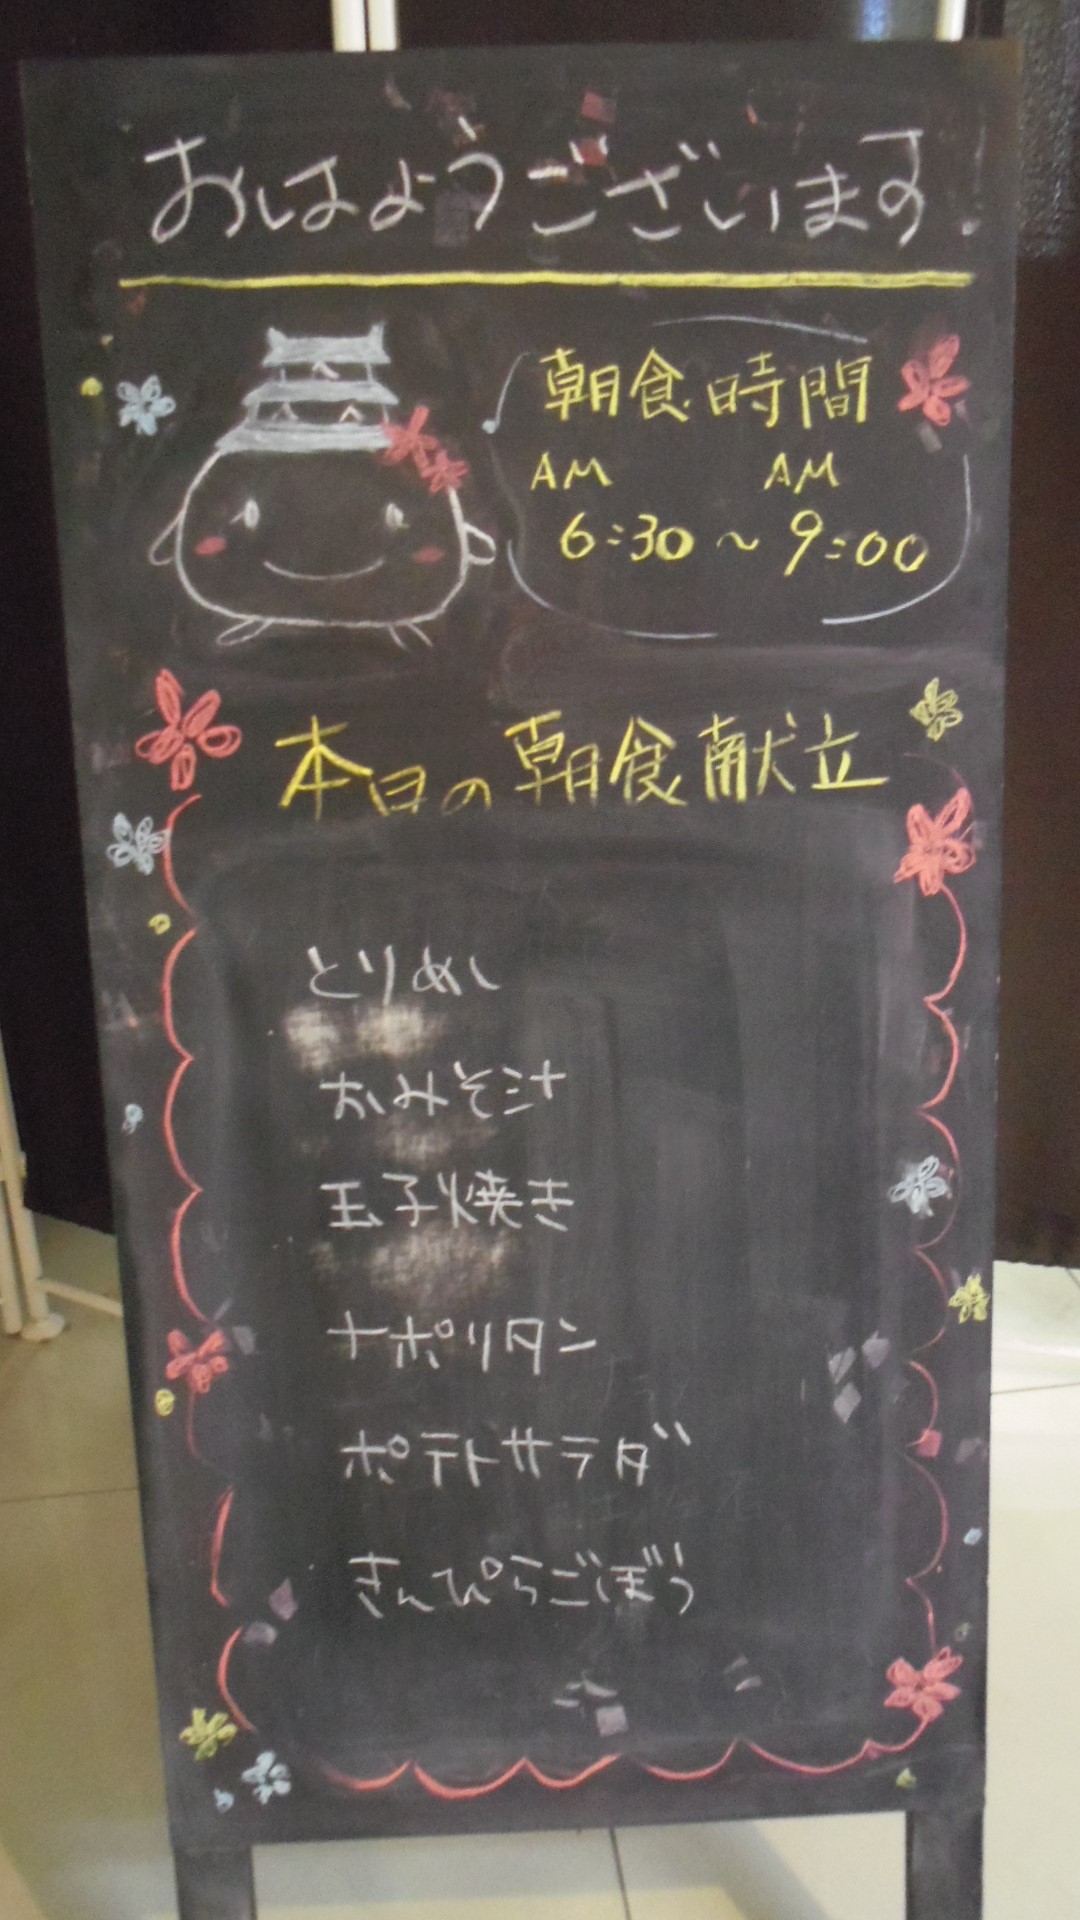 おはようございます.
朝食時間
AM AM
6:30～9:00
本日の朝食献立
とりめし
おみそ汁
玉子焼き
ナポリタン
ポテトサラダ
きんぴらごぼう